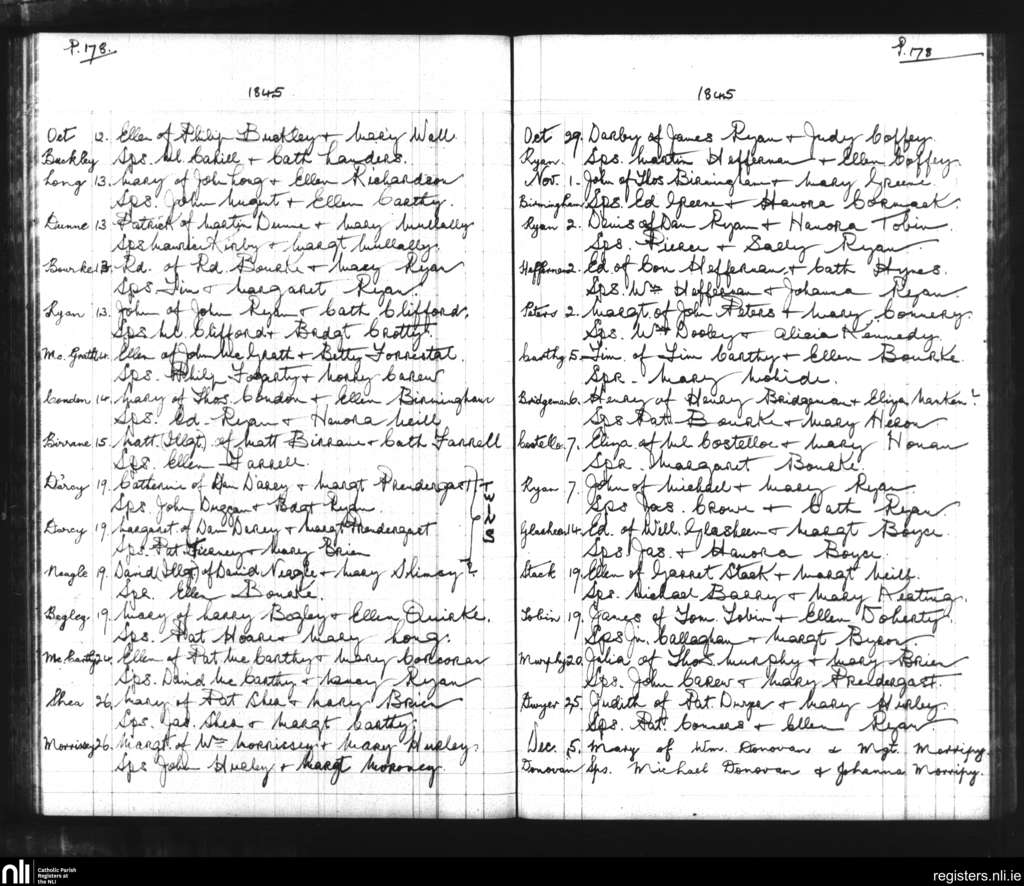 P. 178.
1845
Oct 12. Ellen of Philip Buckley + Mary Wall
Buckley Sps. Ml. Cahill + Cath Landers.
Long 13. Mary of John Long + Ellen Richardson
Sps. John Nugent + Ellen Carthy.
Dunne 13 Patrick of Martin Dunne + Mary Mullally
Sps Maurice Kirby + Margt Mullally.
Bourke 13. Rd. of Rd Bourke + Mary Ryan
Sps Tim + Margaret Ryan.
Ryan 13. John of John Ryan + Cath Clifford.
Sps. Ml. Clifford + Bridgt Crotty.
Mc. Grath 14. Ellen of John Mc Grath + Betty Forrestal.
Sps. Philip Fogarty + Norrey Carew
Condon 14. Mary of Thos. Condon + Ellen Birmingham
Sps. Ed. Ryan + Hanora Neill
Birrane 15. Matt (Illgt) of Matt Birrane + Cath Farrell
Sps. Ellen Farrell.
Darcy 19. Catherine of Dan Darcy + Margt Prendergast
Sps. John Duggan + Bdgt Ryan.
Darcy 19. Margaret of Dan Darcy + Margt Prendergast
Sps. Pat. Tierney + Mary Brien
Neagle 19. David (Illgt) of David Neagle + Mary
Spr. Ellen Bourke.
Begley 19. Mary of Larry Begley + Ellen Quirke.
Sps. Pat Hoare + Mary Long.
Mc. Carthy 24. Ellen of Pat Mc Carthy + Mary Corcoran
Sps. David Mc Carthy + Nancy Ryan
Shea 26. Mary of Pat Shea + Mary Brien
Sps. Jas. Shea + Margt Carthy.
Morrissey 26. Margt of Wm Morrissey + Mary Hurley.
Sps John Hurley + Margt Moroney.
P. 178
1845
Oct 29. Darby of James Ryan + Judy Coffey.
Ryan. Sps. Martin Heffernan + Ellen Coffey.
Nov. 1. John of Thos Birmingham + Mary Greene.
Birmingham Sps. Ed Greene + Hanora Cormack.
Ryan 2. Denis of Dan Ryan + Hanora Tobin.
Sps. Pierce + Sally Ryan
Heffernan 2. Ed. of Con Heffernan + Cath Hynes.
Sps. Wm Heffernan + Johanna Ryan.
Peters 2. Margt. of John Peters + Mary Connery.
Sps. Wm Dooley + Alicia Kennedy
Carthy 5. Tim. of Tim Carthy + Ellen Bourke
Spr. Mary
Bridgeman 6. Henry of Henry Bridgeman + Eliza ?
Sps Pat Bourke + Mary Heron
Costelloe 7. Eliza of Ml Costelloe + Mary Honan
Spr. Margaret Bourke.
Ryan 7. John of Michael + Mary Ryan
Sps Jas. Crowe + Cath Ryan
Glasheen 14. Ed. of Will. Glasheen + Margt Boyce
Sps Jas. + Hanora Boyce.
Stack 19. Ellen of Garret Stack + Margt Neill.
Sps. Michael Barry + Mary Keating.
Tobin 19. James of Tom Tobin + Ellen Doherty.
Sps Jn. Callaghan + Margt Byron.
Murphy 20. Julia of Thos Murphy + Mary Brien
Sps. John Carew + Mary Prendergast.
Dwyer 25. Judith of Pat. Dwyer + Mary Hurley.
Sps. Pat. Connors + Ellen Ryan
Dec. 5. Mary of Wm. Donovan & Mgt. Morrissy
Donovan Sps. Michael Donovan & Johanna Morrissy.
nli
Catholic Parish
Registers at
the NLI
registers.nli.ie